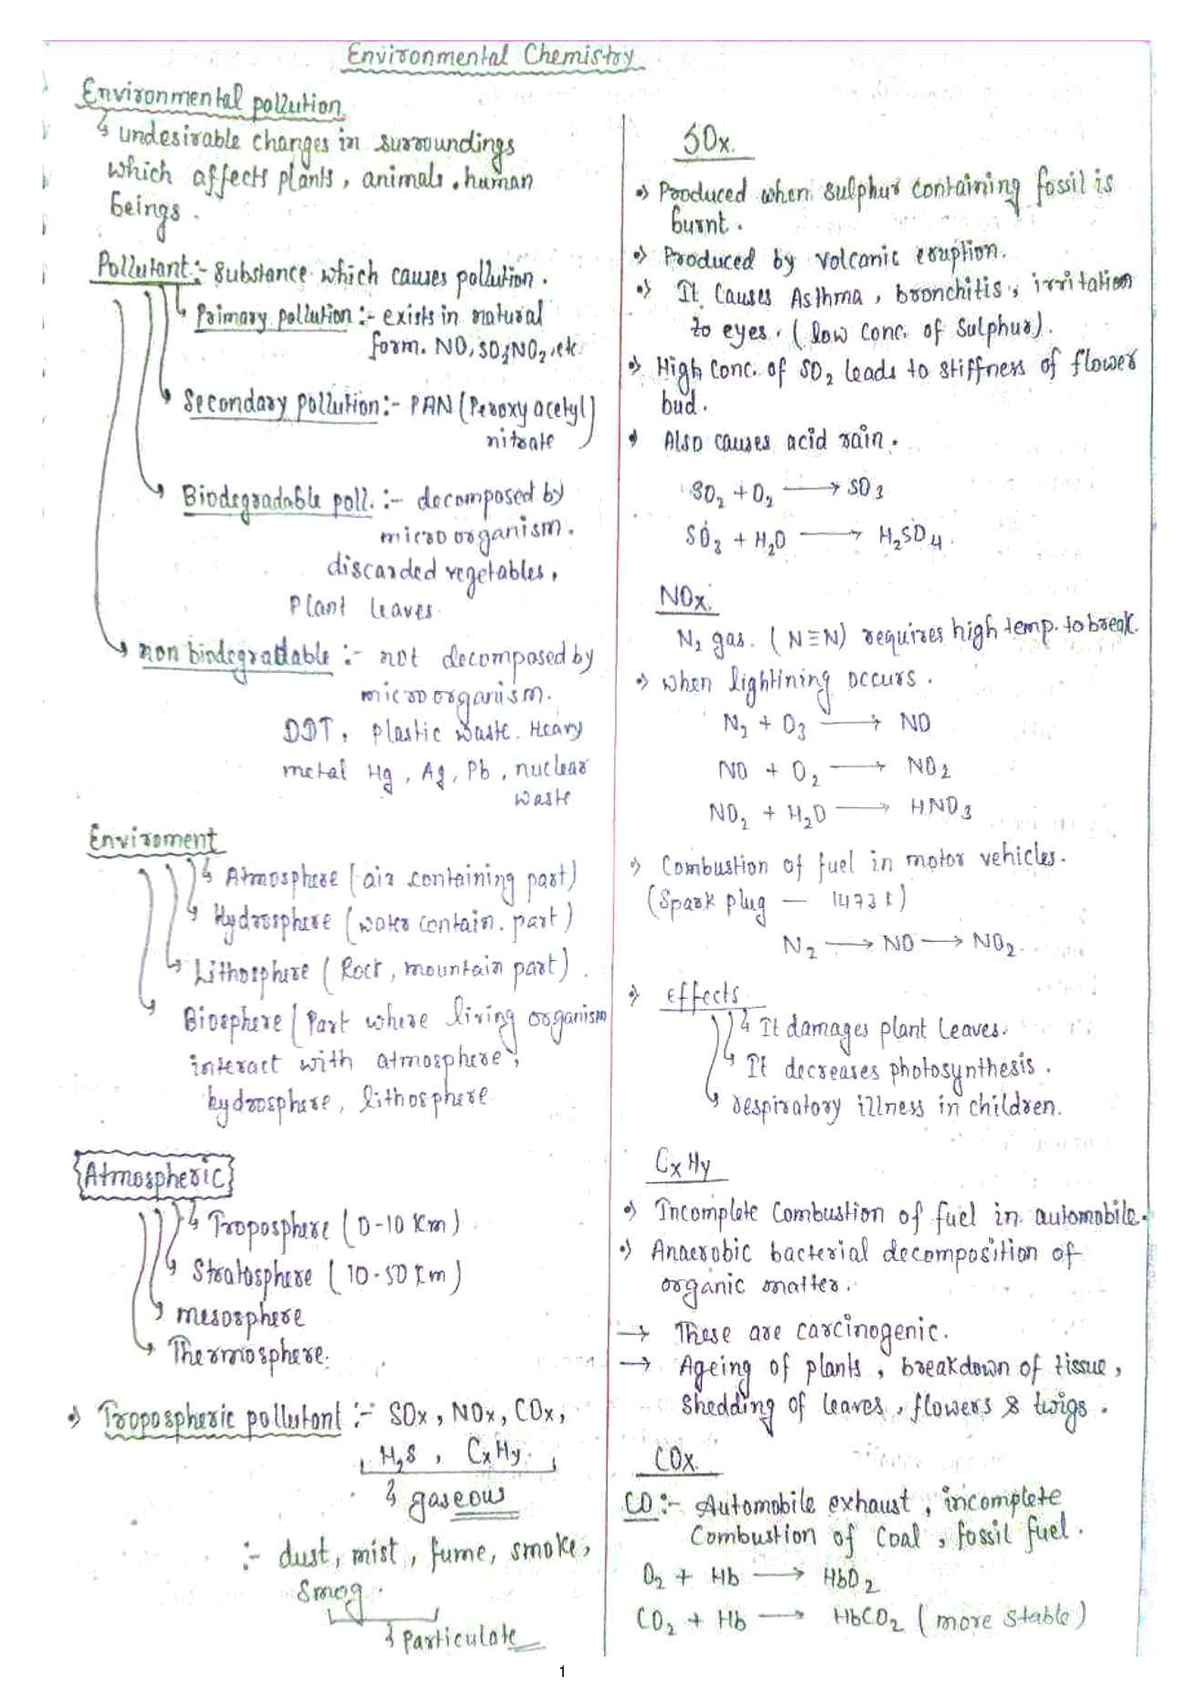 Environmental Chemistry
Environmental pollution
↳ undesirable changes in surroundings
which affects plants, animals, human
beings.
Pollutant :- Substance which causes pollution.
Primary pollution :- exists in natural
form. NO, SO2, NO2, etc
Secondary pollution :- PAN (Peroxy acetyl
nitrate)
Biodegradable poll. :- decomposed by
micro organism.
discarded vegetables,
Plant leaves.
non biodegradable :- not decomposed by
micro organism.
DDT, plastic waste. Heavy
metal Hg, Ag, Pb, nuclear
waste
Enviroment
Atmosphere (air containing part)
Hydrosphere (water contain. part)
Lithosphere (Rock, mountain part).
Biosphere (Part where living organism
interact with atmosphere,
hydrosphere, lithosphere
Atmospheric
Troposphere (0-10 Km)
Stratosphere (10-50 Km)
mesosphere
Thermosphere.
Tropospheric pollutant :- SOx, NOx, COx,
H2S, CxHy.
↳ gaseous
:- dust, mist, fume, smoke,
Smog.
↳ Particulate
SOx.
Produced when sulphur containing fossil is
burnt.
Produced by volcanic eruption.
It causes Asthma, bronchitis, irritation
to eyes. (low conc. of Sulphur).
High conc. of SO2 leads to stiffness of flower
bud.
Also causes acid rain.
SO2 + O2 → SO3
SO3 + H2O → H2SO4.
NOx.
N2 gas. (N≡N) requires high temp. to break.
when lightining occurs.
N2 + O3 → NO
NO + O2 → NO2
NO2 + H2O → HNO3
Combustion of fuel in motor vehicles.
(Spark plug — 1473 K)
N2 → NO → NO2.
effects
It damages plant leaves.
It decreases photosynthesis.
respiratory illness in children.
CxHy
Incomplete Combustion of fuel in automobile.
Anaerobic bacterial decomposition of
organic matter.
→ These are carcinogenic.
→ Ageing of plants, breakdown of tissue,
shedding of leaves, flowers & twigs.
COx.
CO :- Automobile exhaust, incomplete
Combustion of Coal, fossil fuel.
O2 + Hb → HbO2
CO2 + Hb → HbCO2 (more stable)
1